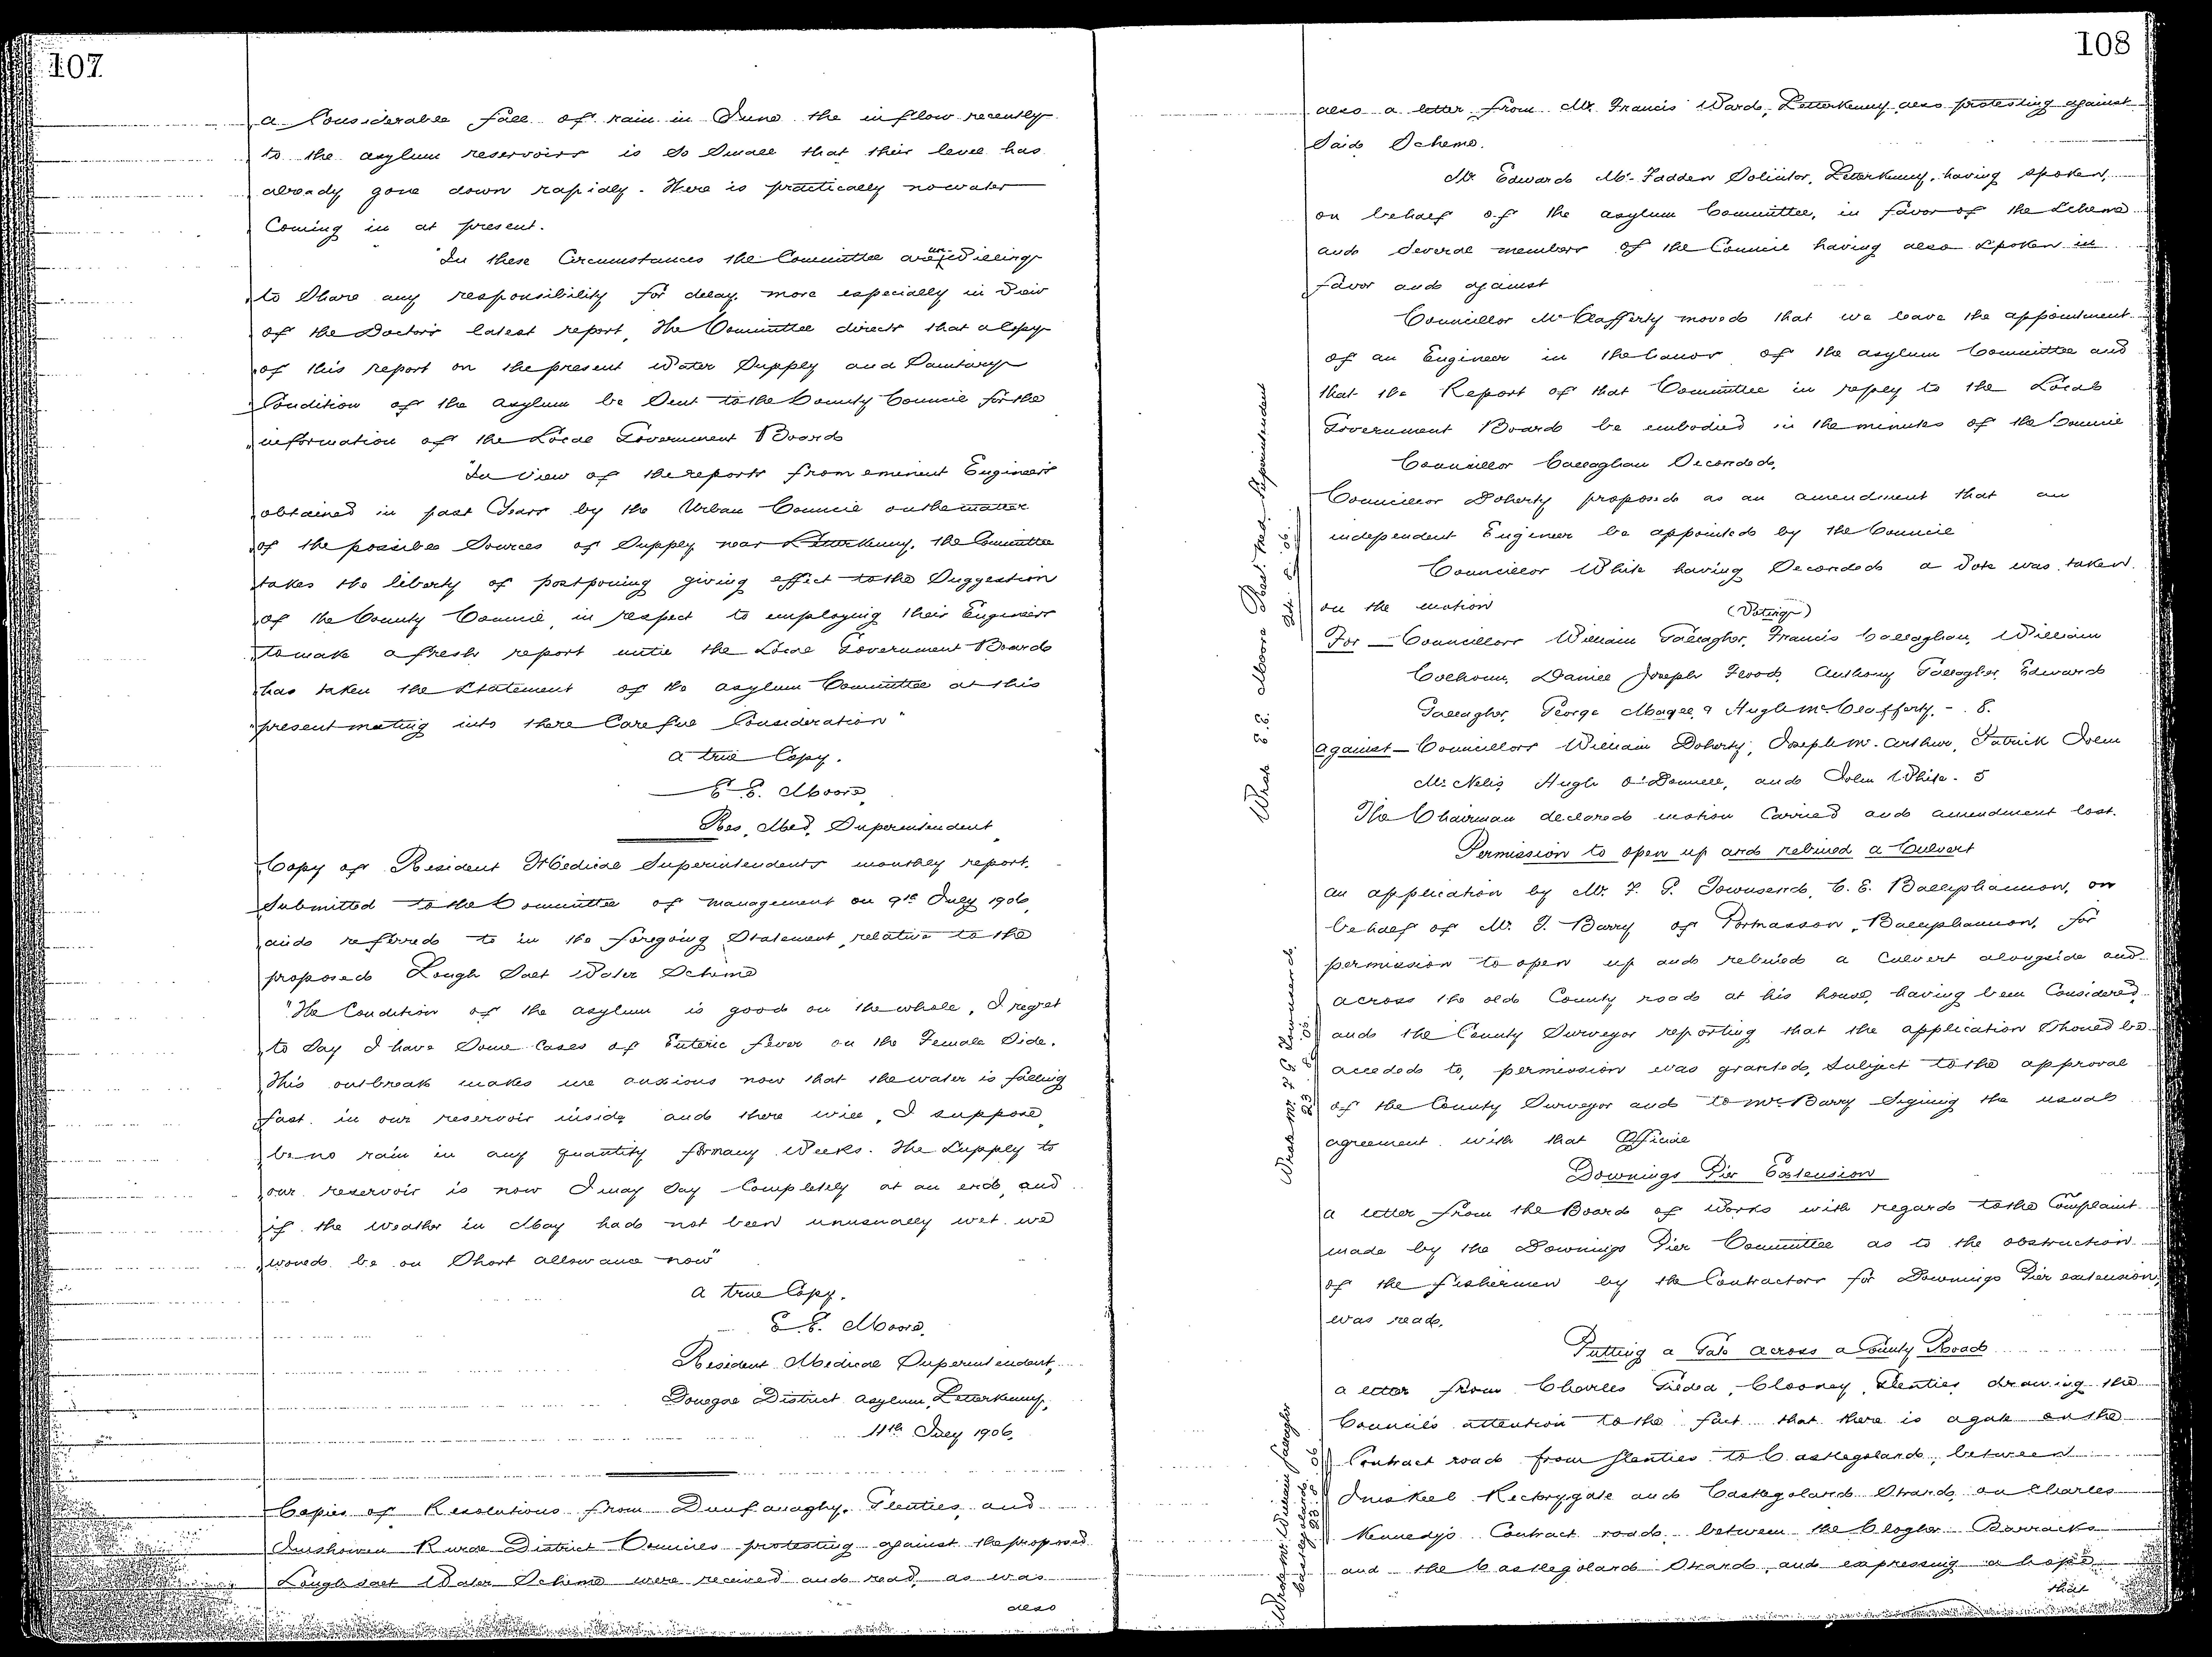 107
a Considerable fall of rain in June the inflow recently
to the asylum reservoirs is so small that their level has
already gone down rapidly. There is practically no water
Coming in at present.
"In these Circumstances the Committee are unwilling
to Share any responsibility for delay, more especially in view
of the Doctor's latest report, The Committee directs that a Copy
of this report on the present Water Supply and Sanitary
Condition of the asylum be Sent to the County Council for the
information of the Local Government Board
"In view of the reports from eminent Engineers
obtained in past Years by the Urban Council on the matter
of the possible Sources of Supply near Letterkenny, the Committee
takes the liberty of postponing giving effect to the Suggestion
of the County Council, in respect to employing their Engineers
to make a fresh report until the Local Government Board
has taken the Statement of the asylum Committee at this
present meeting into there Careful Consideration"
a true Copy.
E. E. Moore,
Res. Med. Superintendent
Copy of Resident Medical Superintendents monthly report.
Submitted to the Committee of management on 9th July 1906,
and referred to in the foregoing Statement, relative to the
proposed Lough Salt Water Scheme
"The Condition of the asylum is good on the whole, I regret
to Say I have Some Cases of Enteric fever on the Female Side.
This outbreak makes me anxious now that the water is falling
fast in our reservoir inside and there will, I suppose,
be no rain in any quantity for many Weeks. The Supply to
our reservoir is now I may Say Completely at an end, and
if the weather in May had not been unusually wet we
would be on Short allowance now"
a true Copy.
E. E. Moore,
Resident Medical Superintendent,
Donegal District Asylum, Letterkenny,
11th July 1906.
Copies of Resolutions from Dunfanaghy, Glenties, and
Inishowen Rural District Councils protesting against the proposed
Lough Salt Water Scheme were received and read, as was
also
108
also a letter from Mr. Francis Ward, Letterkenny, also protesting against
Said Scheme.
Mr. Edward McFadden Solicitor, Letterkenny, having spoken,
on behalf of the asylum Committee, in favor of the Scheme
and Several members of the Council having also Spoken in
favor and against
Councillor McClafferty moved that we leave the appointment
of an Engineer in the hands of the asylum Committee and
that the Report of that Committee in reply to the Local
Government Board be embodied in the minutes of the Council
Councillor Callaghan Seconded.
Wrote E.E. Moore Resdt. Med. Superintendent
Councillor Doherty proposed as an amendment that an
independent Engineer be appointed by the Council
Councillor White having Seconded a Vote was taken
on the motion
(Voting)
For — Councillors William Gallagher, Francis Callaghan, William
Colhoun, Daniel Joseph Flood, Anthony Gallagher, Edward
Gallagher, George Magee, & Hugh McClafferty. - 8.
against — Councillors William Doherty, Joseph McArthur, Patrick John
McNelis, Hugh O'Donnell, and John White - 5
The Chairman declared motion Carried and amendment lost.
Permission to open up and rebuild a Culvert
an application by Mr. F. G. Townsend, C. E. Ballyshannon, on
behalf of Mr. J. Barry of Portnasson, Ballyshannon, for
permission to open up and rebuild a Culvert alongside and
across the old County road at his house, having been Considered
and the County Surveyor reporting that the application Should be
acceded to, permission was granted, Subject to the approval
of the County Surveyor and to Mr. Barry Signing the usual
agreement with that Official
Wrote Mr. F G Townsend
23. 8. 06.
Downings Pier Extension
a letter from the Board of Works with regard to the Complaint
made by the Downings Pier Committee as to the obstruction
of the fishermen by the Contractors for Downings Pier extension,
was read.
Putting a Gate across a County Road
a letter from Charles Gildea, Clooney, Glenties drawing the
Council's attention to the fact that there is a gate on the
Contract road from Glenties to Castlegoland, between
Iniskeel Rectory gate and Castlegoland Strand, on Charles
Kennedy's Contract road, between the Clogher Barracks
and the Castlegoland Strand, and expressing a hope
that
Wrote Mr. William Gallagher
Castlegoland. 23. 8. 06